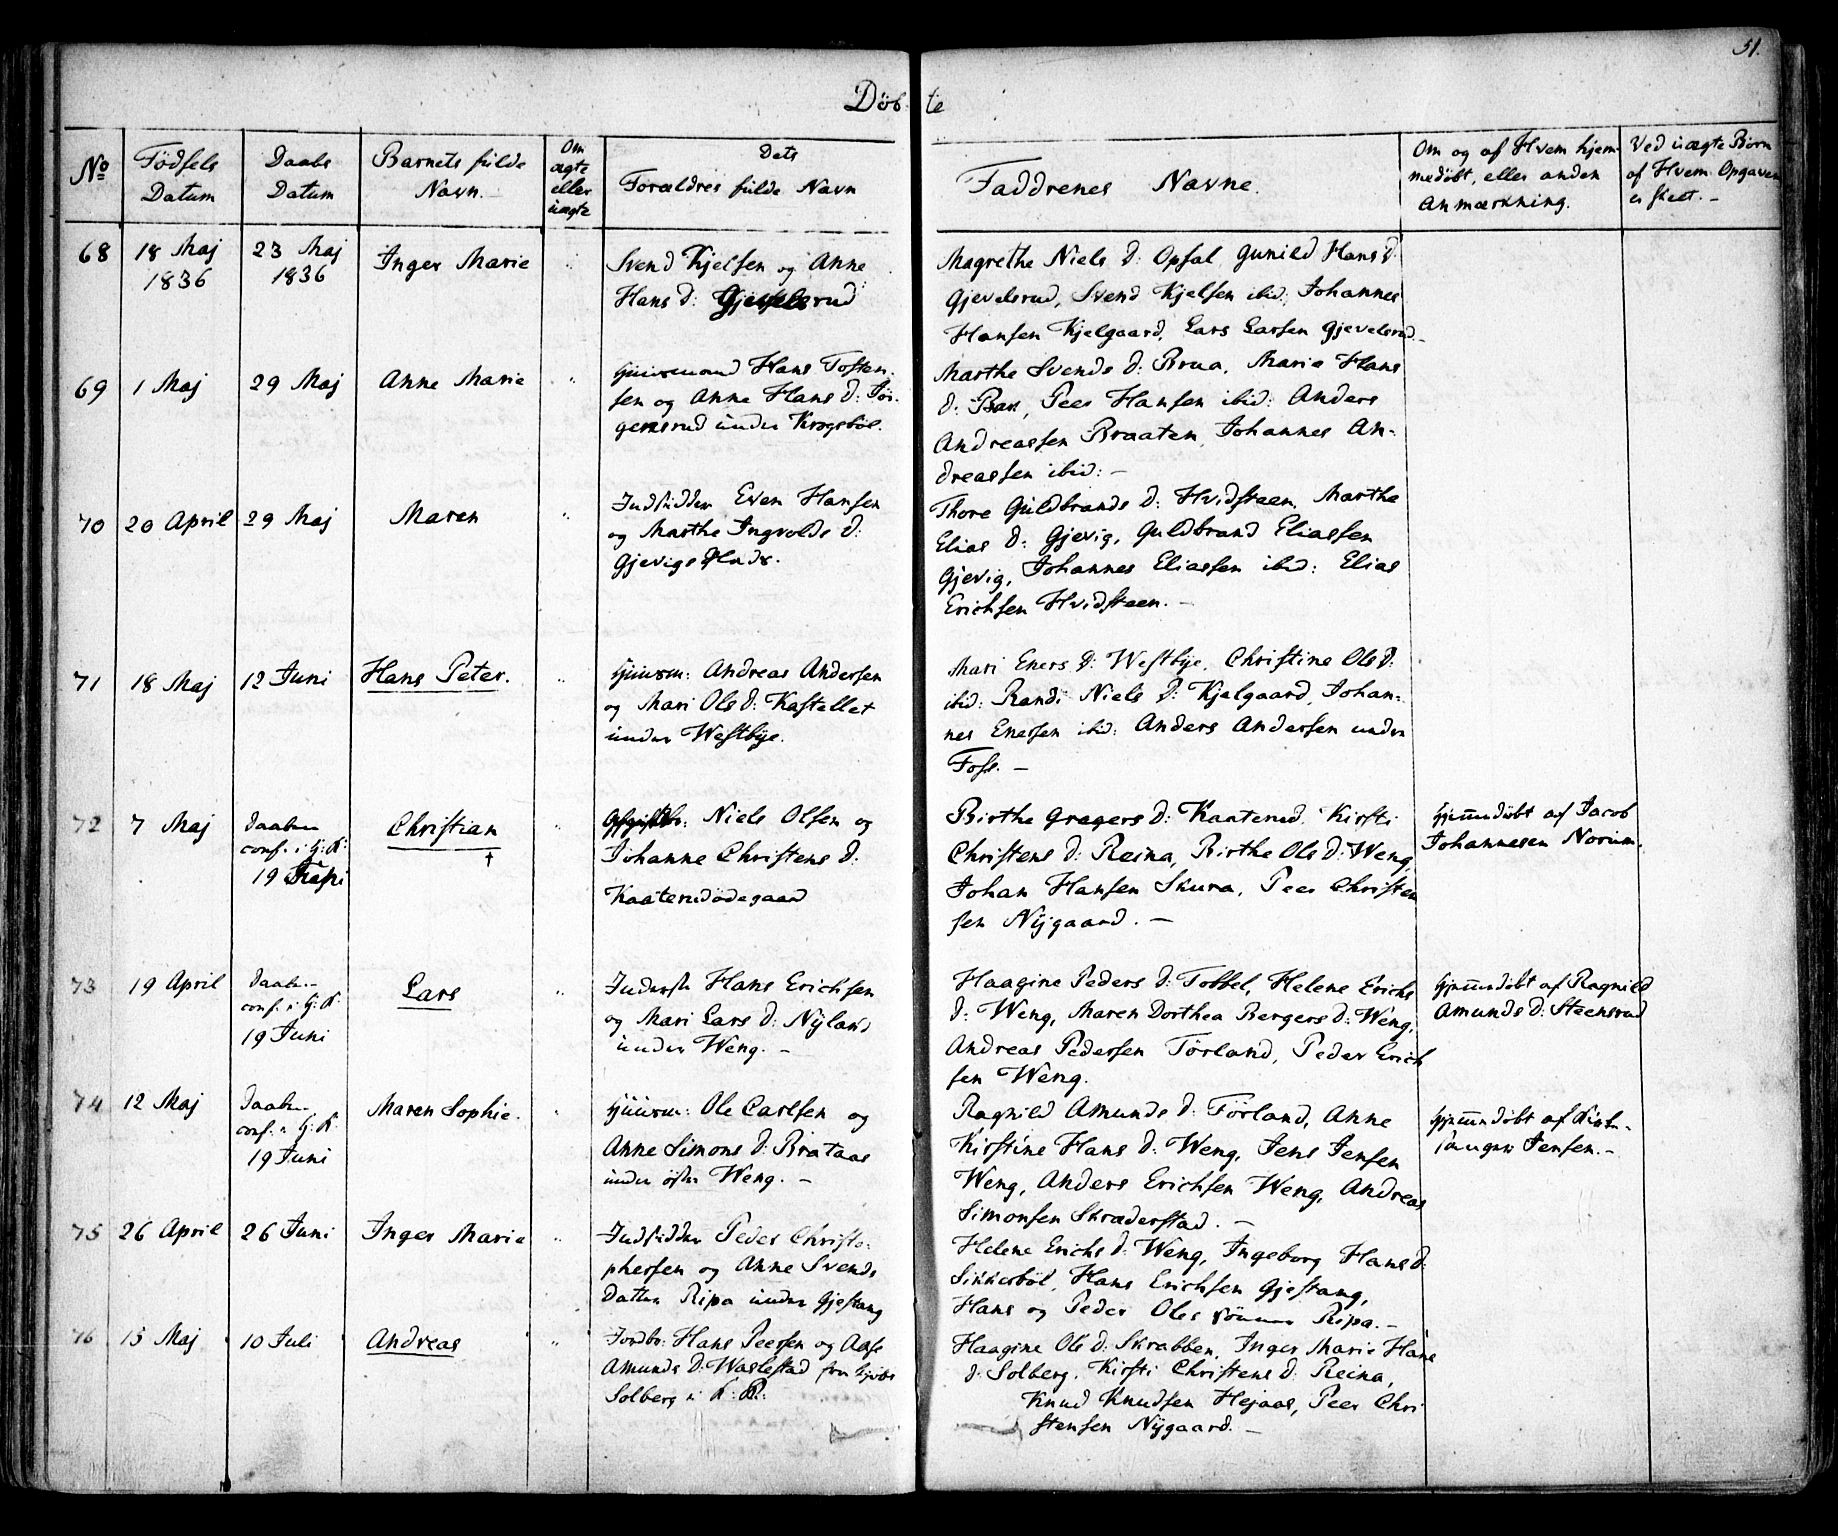 51.
Döbte
No
Födsels
Datum
Daabs
Datum
Barnets fulde
Navn.
Om
ægte
eller
uægte
Dets
Forældres fulde Navn
Faddrenes Navne.
Om og af Hvem hjem
medöbt, eller anden
Anmærkning.
Ved uægte Börn
af Hvem Opgaven
er skeet.-
68
18 Maj
1836
23 Maj
1836
Inger Marie
"
Svend Kjelsen og Anne
Hans D: Gjevelsrud
Magrethe Niels D: Opsal, Gunild Hans D:
Gjevelsrud, Svend Kjelsen ibid: Johannes
Hansen Kjelgaard, Lars Larsen Gjevelsrud
69
1 Maj
29 Maj
Anne Marie
"
Huusmand Hans Tosten-
sen og Anne Hans D: Jör-
gensrud under Krogsböl.
Marthe Svends D: Brua, Marie Hans
D: , Peer Hansen ibid: Anders
Andreassen Braaten, Johannes An-
dreassen ibid: -
70
20 April
29 Maj
Maren
"
Indsidder Even Hansen
og Marthe Ingvolds D:
Gjevigs Plads.
Thore Guldbrands D: Hvidsteen, Marthe
Elias D: Gjevig, Guldbrand Eliassen
Gjevig, Johannes Eliassen ibid: Elias
Erichsen Hvidsteen. -
71
18 Maj
12 Juni
Hans Peter.
"
Huusm: Andreas Andersen
og Mari Ols D: Kastellet
under Westbye.
Mari Eners D: Westbye, Christine Ols D:
ibid: Randi Niels D: Kjelgaard, Johan-
nes Enersen ibid: Anders Andersen under
Foss. -
72
7 Maj
Daaben
conf. i H: K:
19 Juni
Christian
†
"
Niels Olsen og
Johanne Christens D:
Kaaterudödegaard
Birthe Gregers D: Kaaterud, Kirsti
Christens D: Reina, Birthe Ols D: Weng,
Johan Hansen Skura, Peer Christen
sen Nygaard. -
Hjemmedöbt af Jacob
Johannesen Norum.
73
19 April
Daaben
conf. i H: K:
19 Juni
Lars
"
Inderst Hans Erichsen
og Mari Lars D: Nyland
under Weng. -
Haagine Peders D: Tossel, Helene Erichs
D: Weng, Maren Dorthea Bergers D: Weng,
Andreas Pedersen Törland, Peder Erich
sen Weng.
Hjemmedöbt af Ragnild
Amunds D: Steensrud
74
12 Maj
Daaben
conf. i H: K:
19 Juni
Maren Sophie.
"
Huusm: Ole Carlsen og
Anne Simons D: Brataas
under öster Weng. -
Ragnild Amunds D: Törland, Anne
Kirstine Hans D: Weng, Jens Jensen
Weng, Anders Erichsen Weng, Andreas
Simonsen Skræderstad. -
Hjemmedöbt af Kirke-
sanger Jensen. -
75
26 April
26 Juni
Inger Marie
"
Indsidder Peder Christo-
phersen og Anne Svends
Datter Ripa under Gjestang
Helene Erichs D: Weng, Ingeborg Hans D:
Sikkesböl, Hans Erichsen Gjestang,
Hans og Peder Oles sönner Ripa. -
76
15 Maj
10 Juli
Andreas
"
Jordbr: Hans Peersen og Aase
Amunds D: Waslestad fra
Solberg i K: P:
Haagine Ols D: Skrabben, Inger Marie Hans
D: Solberg, Kirsti Christens D: Reina,
Knud Knudsen Hejaas, Peer Chri
stensen Nygaard. -